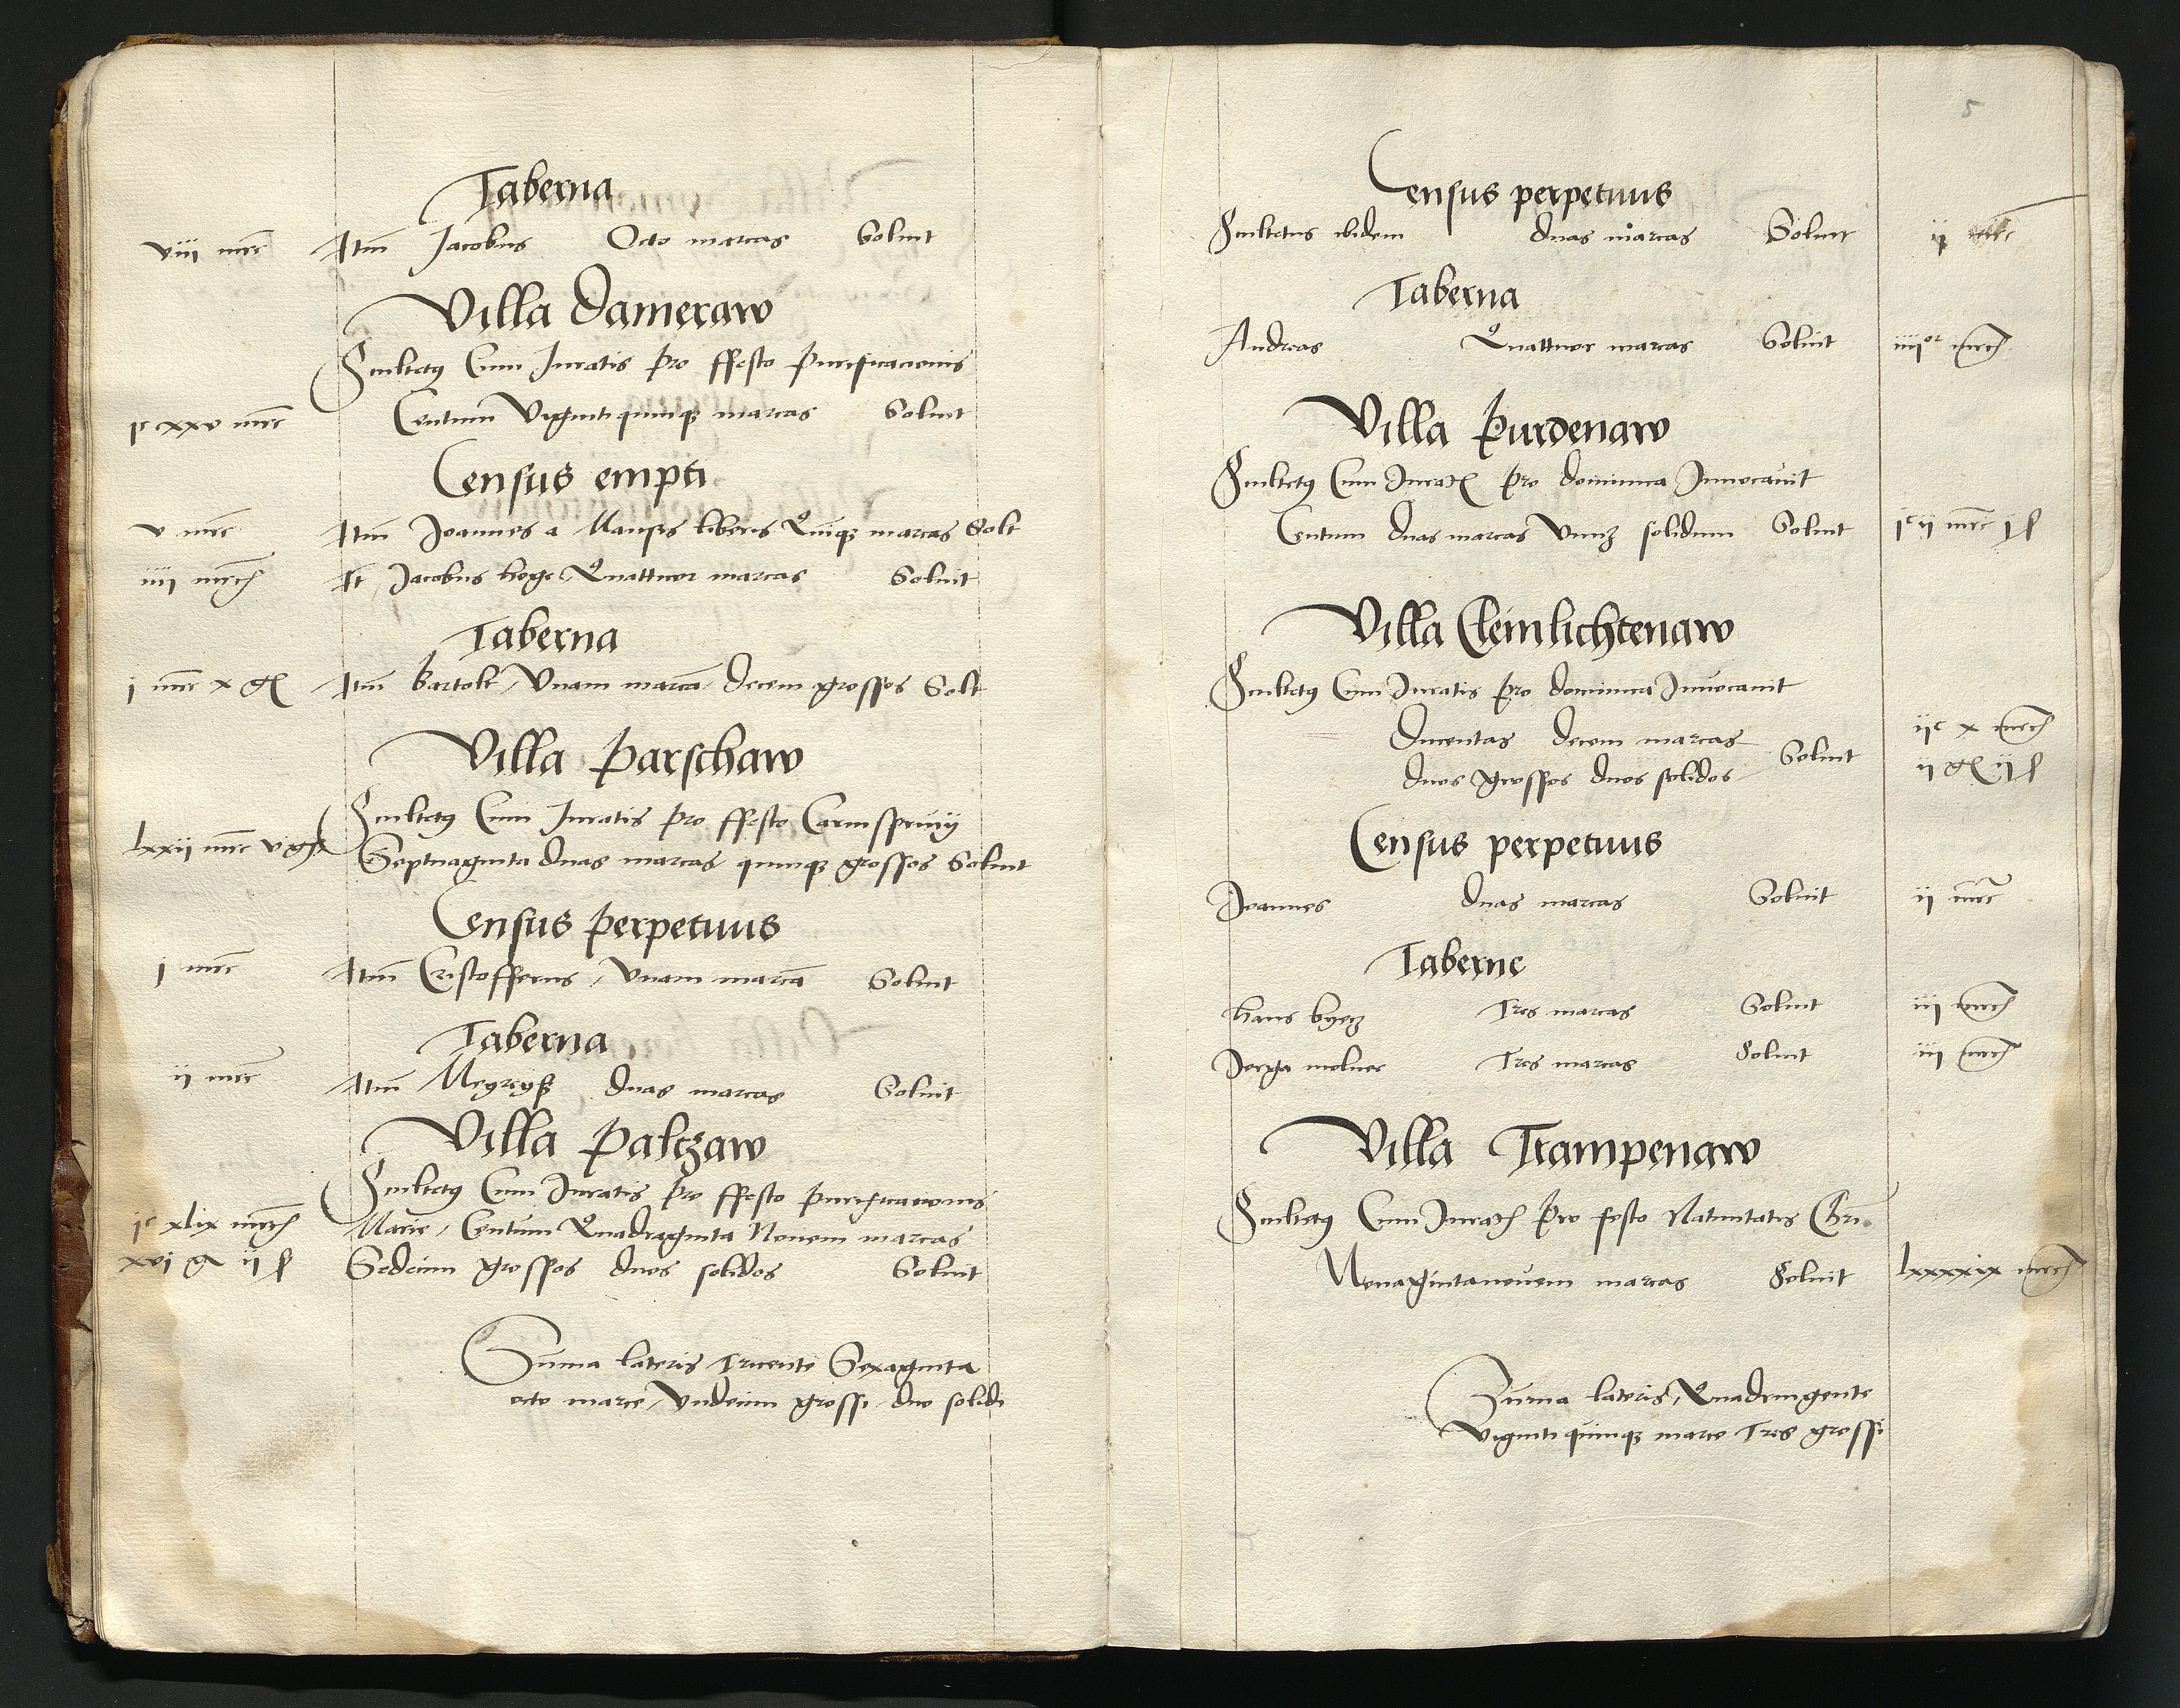 Taberna
viii mrc Itm Jacobus Octo marcas Soluit
Villa Dameraw
Scultetus Cum Juratis pro ffesto purificacionis
jc xxv mrc Centum Viginti quinqz marcas Soluit
Census empti
v mrc Itm Joannes a Mansis liberis Quinqz marcas Solt
iiii mrc It Jacobus hoge Quattuor marcas Soluit
Taberna
j mrc x gr Itm bartolt Vnam marca decem grossos Solt
Villa Parschaw
Scultetus Cum Juratis pro ffesto Carnisprivij
lxxij mrc v gr Septuaginta duas marcas quinqz grossos Soluit
Census perpetuus
j mrc Itm Cristofferus Vnam marca Soluit
Taberna
ij mrc Itm duas marcas Soluit
Villa Paltzaw
Scultetus Cum Juratis pro ffesto purificacionis
jc xlix mrc Marie Centum Quadraginta Nouem marcas
xvi gr ij ß Sedecim grossos duos solidos Soluit
Suma lateris Tricente Sexaginta
octo marce Vndecim grossi duo solidi
5
Census perpetuus
Scultetus ibidem duas marcas Soluit ij mrc
Taberna
Andreas Quattuor marcas Soluit iiiior mrc
Villa Purdenaw
Scultetus Cum Jurat pro dominica Inuocauit
Centum duas marcas Vnuz solidum Soluit jc ij mrc j ß
Villa Cleinlichtenaw
Scultetus Cum Juratis pro dominica Inuocauit
Ducentas decem marcas ijc x mrc
duos grossos duos solidos Soluit ij gr ij ß
Census perpetuus
Joannes duas marcas Soluit ij mrc
Taberne
hans byetz Tres marcas Soluit iij mrc
Jorga molner Tres marcas Soluit iij mrc
Villa Trampenaw
Scultetus Cum Jurat pro festo Natiuitatis Chri
Nonagintanouem marcas Soluit lxxxxix mrc
Suma lateris Quadringente
Viginti quinqz marce Tres grossi